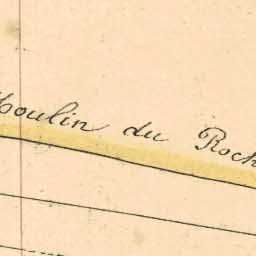 Moulin du Roch